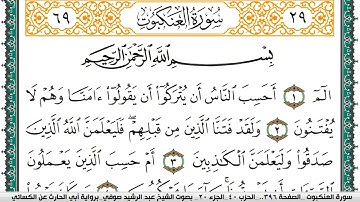 ٢٩ سُورَةُ العَنكَبُوت ٦٩
بِسْمِ اللَّهِ الرَّحْمَٰنِ الرَّحِيمِ
الٓمٓ ١ أَحَسِبَ النَّاسُ أَن يُتْرَكُوٓا۟ أَن يَقُولُوٓا۟ ءَامَنَّا وَهُمْ لَا
يُفْتَنُونَ ٢ وَلَقَدْ فَتَنَّا الَّذِينَ مِن قَبْلِهِمْ ۖ فَلَيَعْلَمَنَّ اللَّهُ الَّذِينَ
صَدَقُوا۟ وَلَيَعْلَمَنَّ الْكَٰذِبِينَ ٣ أَمْ حَسِبَ الَّذِينَ يَعْمَلُونَ
سورة العنكبوت .. الصفحة ٣٩٦.. الحزب ٤٠ .. الجزء ٢٠ .. بصوت الشيخ عبد الرشيد صوفي .. برواية أبي الحارث عن الكسائي